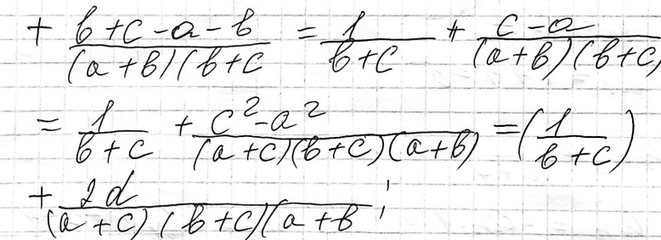 + (b+c-a-b)/((a+b)(b+c) = 1/(b+c) + (c-a)/((a+b)(b+c)
= 1/(b+c) + (c²-a²)/((a+c)(b+c)(a+b)) = (1/(b+c))
+ 2d/((a+c)(b+c)(a+b ;